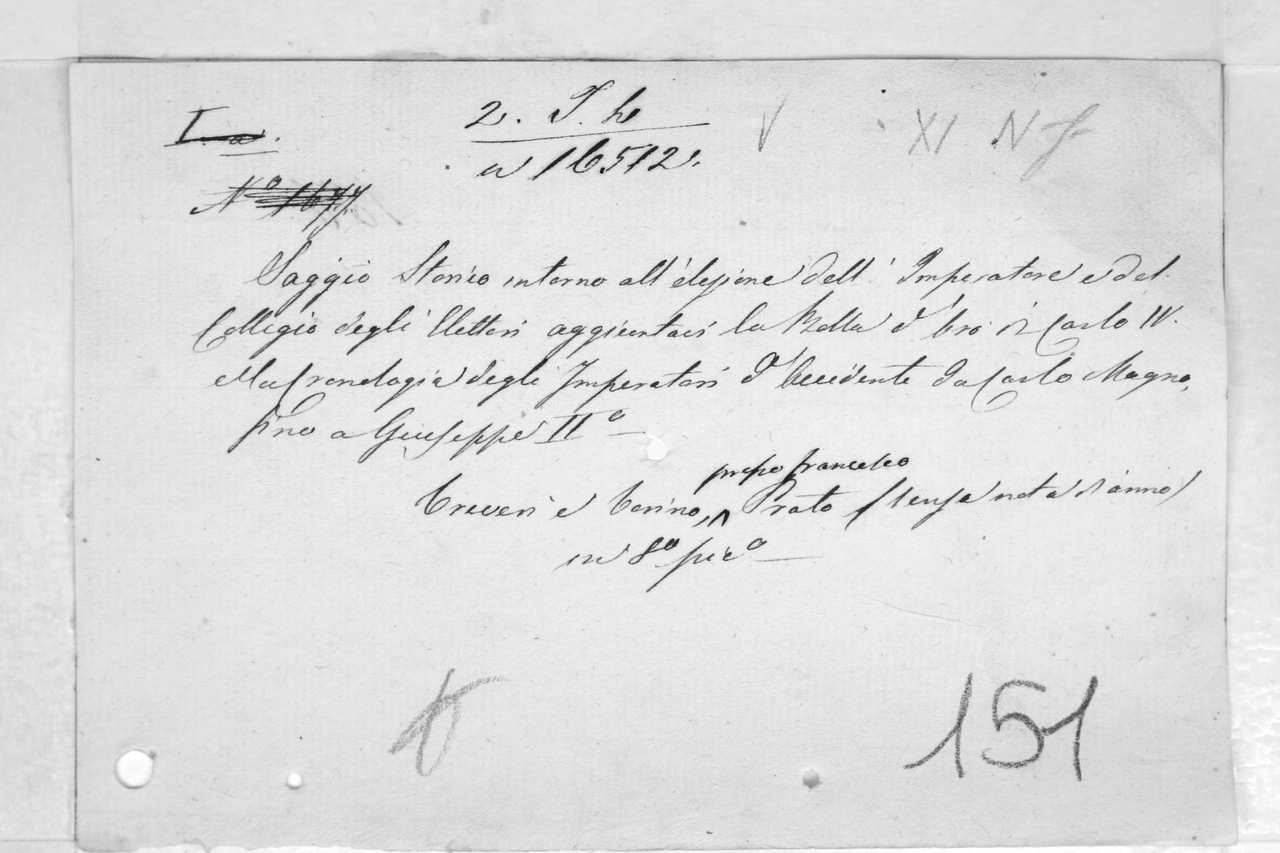 I. a.
2. T. h
a 16512.
V
XI N f
No 1677.
Saggio Storico intorno all'elezione dell' Imperatore e del
Collegio degli Elettori aggiuntavi la Bolla d'Oro di Carlo IV.
e la Cronologia degli Imperatori d'Occidente da Carlo Magno,
fino a Giuseppe IIo
presso Francesco
Treveri e Torino, ^ Prato (senza nota d'anno)
in 8o pico
151